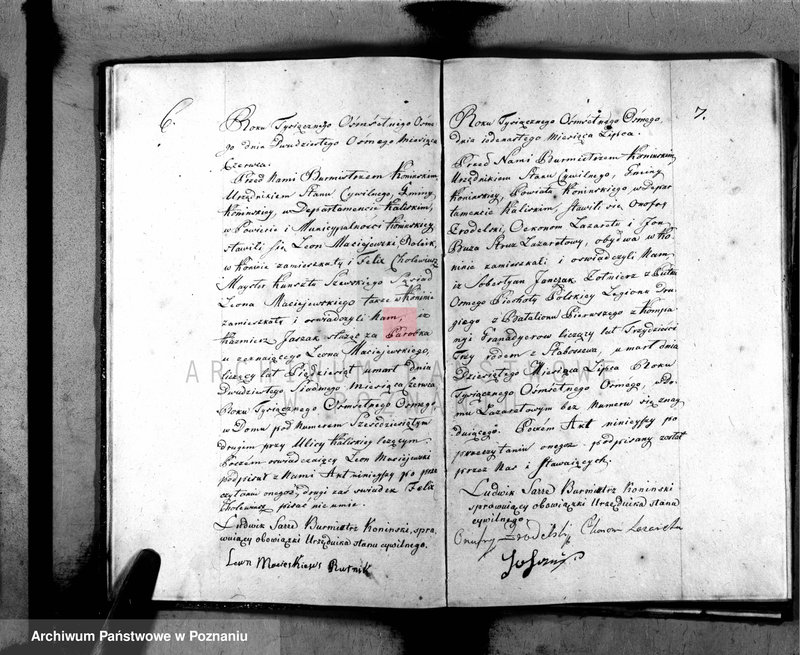 6.
Roku Tysiącznego Ośmsetnego Osme-
go dnia Dwudziestego Osmego Miesiąca
Czerwca.
Przed Nami Burmistrzem Konińskim
Urzędnikiem Stanu Cywilnego, Gminy
Konińskiey, w Departamencie Kaliskim,
w Powiecie i Municypalności Konińskiey
stawili się Leon Maciejewski Rolnik,
w Koninie zamieszkały i Felix Cholewicz
Mayster kunsztu Szewskiego Sąsiad
Leona Maciejewskiego także w Koninie
zamieszkały i oswiadczyli Nam, iż
Kazmierz Jaszak służąc za Parobka
u zeznającego Leona Maciejewskiego,
liczący lat Pięćdziesiąt umarł dnia
Dwudziestego Siodmego miesiąca Czerwca
Roku Tysiącznego Ośmsetnego Osmego,
w Domu pod Numerem Sześćdziesiątym
drugim przy Ulicy Kaliskiey leżącym.
Poczem oswiadczaiący Leon Maciejewski
podpisał z Nami Akt ninieyszy po prze
czytaniu onegoż, drugi zaś świadek Felix
Cholewicz pisać nie umie.
Ludwik Sarre Burmistrz Koninski, spra-
wuiący obowiązki Urzędnika stanu cywilnego.
Leon
7.
Roku Tysiącznego Ośmsetnego Osmego,
dnia iedenastego Miesiąca Lipca.
Przed Nami Burmistrzem Konińskim,
Urzędnikiem Stanu Cywilnego, Gminy
Konińskiey, Powiatu Konińskiego, w Depar-
tamencie Kaliskim, stawili się Onofry
Zrodelski, Oekonom Lazaretu i
Lazaretowy, obydwa w Ko-
ninie zamieszkali i oswiadczyli Nam
iż Sobestyan Janczak Żołnierz z Pułku
Osmego Piechoty Polskiey Legionu dru-
giego z Batalionu Pierwszego z Kompa-
nyi Granadyerow liczący lat Trzydzieści
Trzy rodem z umarł dnia
Dziewiątego Miesiąca Lipca Roku
Tysiącznego Ośmsetnego Osmego, w do-
mu Lazaretowym bez Numeru się znay-
duiącego. Poczem Akt ninieyszy po
przeczytaniu onegoż podpisany został
przez Nas i Stawaiących.
Ludwik Sarre Burmistrz Koninski
sprawuiący obowiązki Urzędnika stanu
cywilnego
Onufry Zrodelski Lazaretu
ARCHIWUM PAŃSTWOWE
W POZNANIU
Archiwum Państwowe w Poznaniu